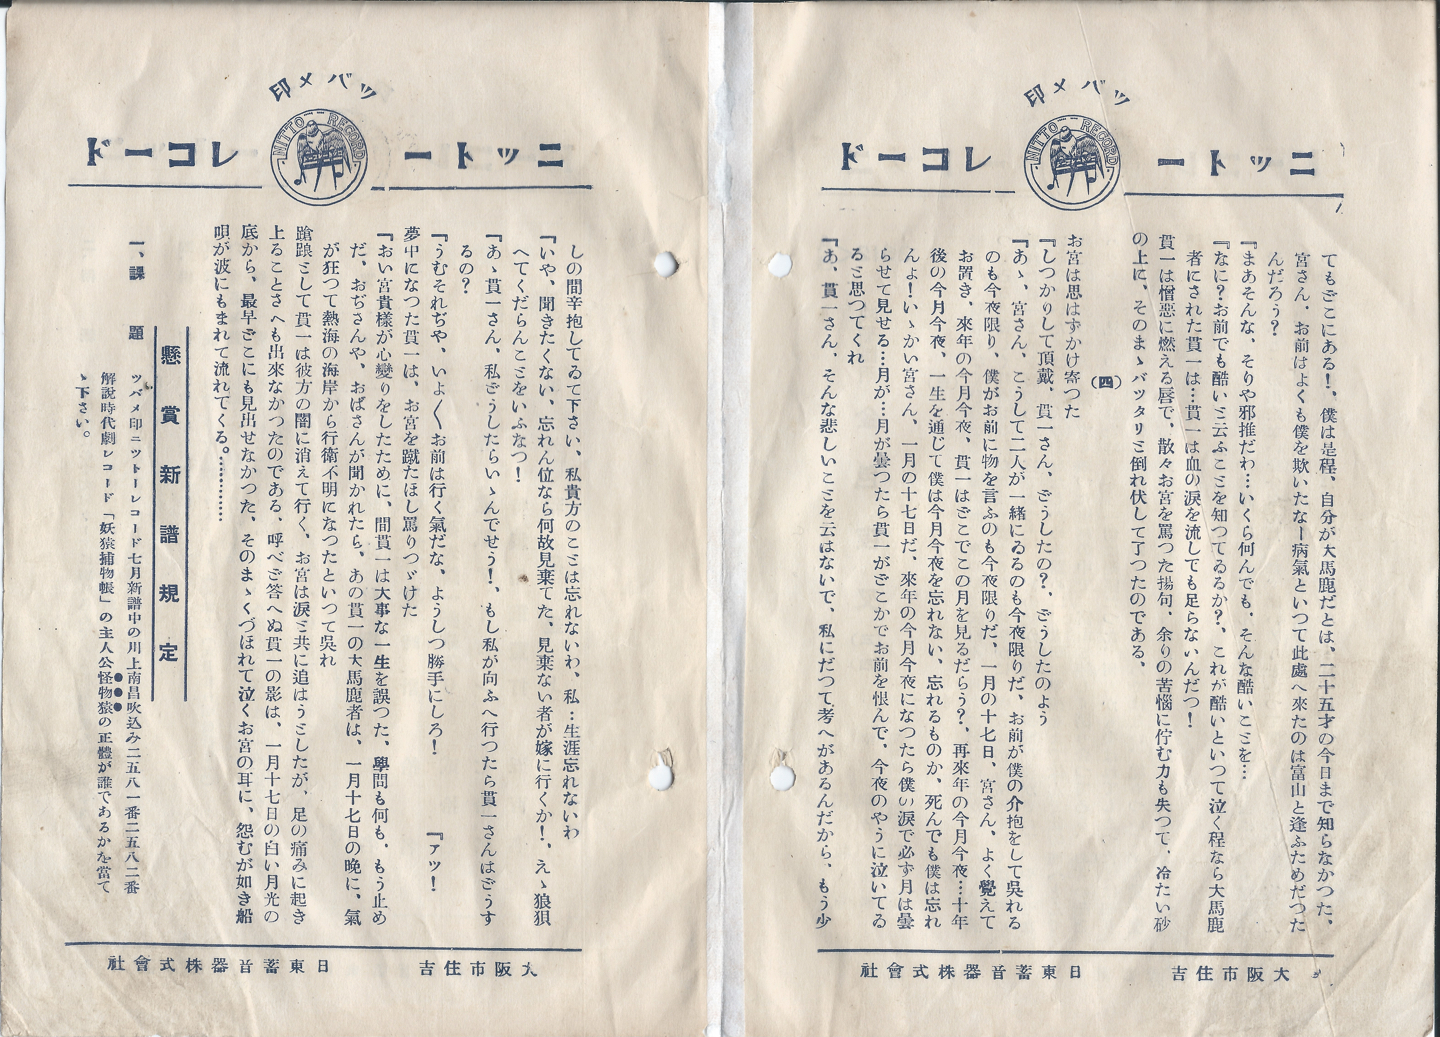 ツバメ印
NITTO RECORD
ニットーレコード
てもどこにある！、僕は是程、自分が大馬鹿だとは、二十五才の今日まで知らなかつた、
宮さん、お前はよくも僕を欺いたなー病氣といつて此處へ來たのは富山と逢ふためだつた
んだらう？
『まあそんな、そりや邪推だわ…いくら何んでも、そんな酷いことを…
『なに？お前でも酷いと云ふことを知つてゐるか？、これが酷いといつて泣く程なら大馬鹿
者にされた貫一は…貫一は血の涙を流しても足らないんだつ！
貫一は憎惡に燃える唇で、散々お宮を罵つた揚句、余りの苦惱に佇む力も失つて、冷たい砂
の上に、そのまゝバツタリと倒れ伏して了つたのである、
（四）
お宮は思はずかけ寄つた
『しつかりして頂戴、貫一さん、どうしたの？、どうしたのよう
『あゝ、宮さん、こうして二人が一緒にゐるのも今夜限りだ、お前が僕の介抱をして吳れる
のも今夜限り、僕がお前に物を言ふのも今夜限りだ、一月の十七日、宮さん、よく覺えて
お置き、來年の今月今夜、貫一はどこでこの月を見るだらう？、再來年の今月今夜…十年
後の今月今夜、一生を通じて僕は今月今夜を忘れない、忘れるものか、死んでも僕は忘れ
んよ！いゝかい宮さん、一月の十七日だ、來年の今月今夜になつたら僕の涙で必ず月は曇
らせて見せる…月が…月が曇つたら貫一がどこかでお前を恨んで、今夜のやうに泣いてる
ると思つてくれ
『あ、貫一さん、そんな悲しいことを云はないで、私にだつて考へがあるんだから、もう少
大阪市住吉　日東蓄音器株式會社
ツバメ印
NITTO RECORD
ニットーレコード
しの間辛抱してゐて下さい、私貴方のことは忘れないわ、私…生涯忘れないわ
『いや、聞きたくない、忘れん位なら何故見棄てた、見棄ない者が嫁に行くか！、えゝ狼狽
へてくだらんことをいふなつ！
『あゝ貫一さん、私どうしたらいゝんでせう！、もし私が向ふへ行つたら貫一さんはどうす
るの？
『うむそれぢや、いよ〱お前は行く氣だな、ようしつ勝手にしろ！　『アツ！
夢中になつた貫一は、お宮を蹴たほし罵りつゞけた
『おい宮貴樣が心變りをしたために、間貫一は大事な一生を誤つた、學問も何も、もう止め
だ、おぢさんや、おばさんが聞かれたら、あの貫一の大馬鹿者は、一月十七日の晩に、氣
が狂つて熱海の海岸から行衞不明になつたといつて吳れ
蹌踉として貫一は彼方の闇に消えて行く、お宮は涙と共に追はうとしたが、足の痛みに起き
上ることさへも出來なかつたのである、呼べど答へぬ貫一の影は、一月十七日の白い月光の
底から、最早どこにも見出せなかつた、そのまゝくづほれて泣くお宮の耳に、怨むが如き船
唄が波にもまれて流れてくる。…………
懸賞新譜規定
一、課題　ツバメ印ニツトーレコード七月新譜中の川上南昌吹込み二五八一番二五八二番
解説時代劇レコード「妖猿捕物帳」の主人公怪物猿の正體が誰であるかを當て
ゝ下さい。
大阪市住吉　日東蓄音器株式會社